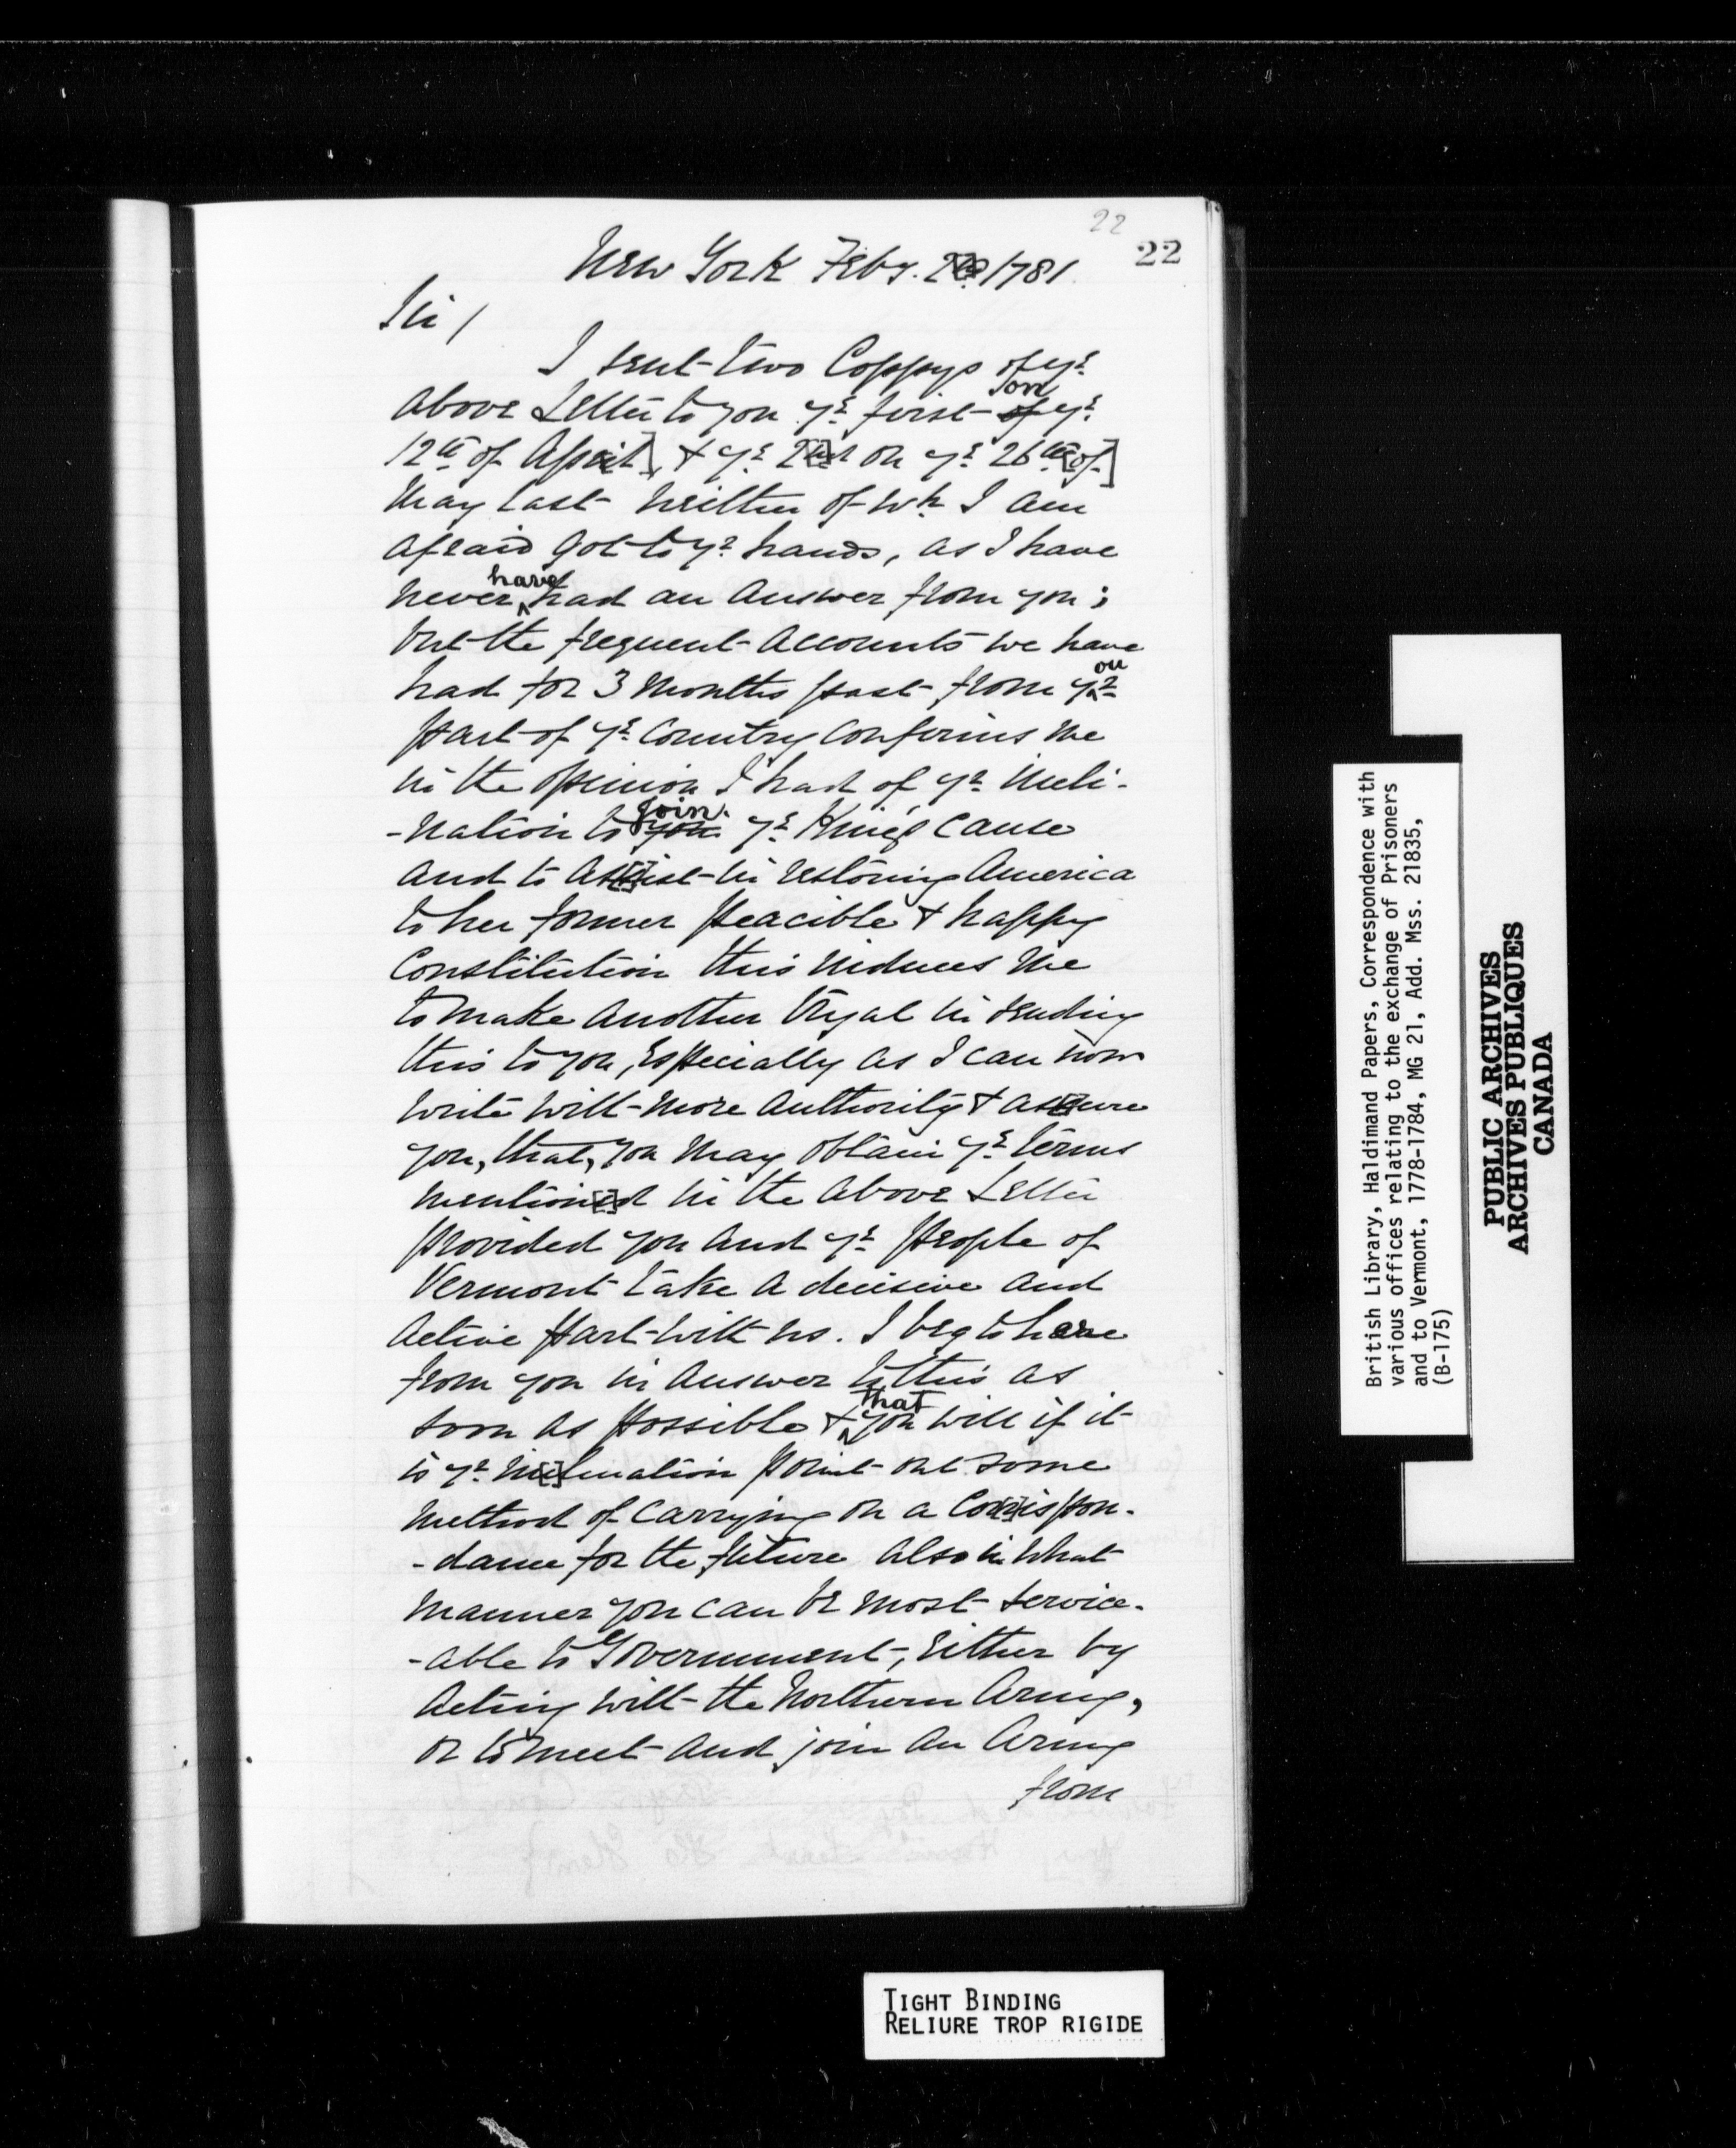 22
22
New York Feby. 1781
Sir /
I sent two Coppys of ye.
above Letter to you ye. first on of ye.
12th of April], & ye. 2nd on ye. 26th [of]
May last neither of wh. I am
afraid got to yr. hands, as I have
never have had an answer from you;
but the frequent accounts we have
had for 3 months past from your
part of ye. Country confirms me
in the opinion I had of yr. incli-
-nation to join you ye. King's cause
and to assist in restoring America
to her former peacible & happy
Constitution this induces me
to make another tryal in sending
this to you, Especially as I can now
write with more authority & assure
you, that, you may obtain ye. terms
mention[e]d in the above Letter
provided you and ye. people of
Vermont take a decisive and
active part with us. I beg to hare
from you in answer to this as
soon as possible & that you will if it
is yr. inclination point out some
method of carrying on a Corrispon-
-dance for the future also in what
manner you can be most service-
-able to Government, Either by
acting with the Northern Army,
or to meet and join an Army
from
British Library, Haldimand Papers, Correspondence with
various offices relating to the exchange of Prisoners
and to Vermont, 1778-1784, MG 21, Add. Mss. 21835,
(B-175)
PUBLIC ARCHIVES
ARCHIVES PUBLIQUES
CANADA
TIGHT BINDING
RELIURE TROP RIGIDE